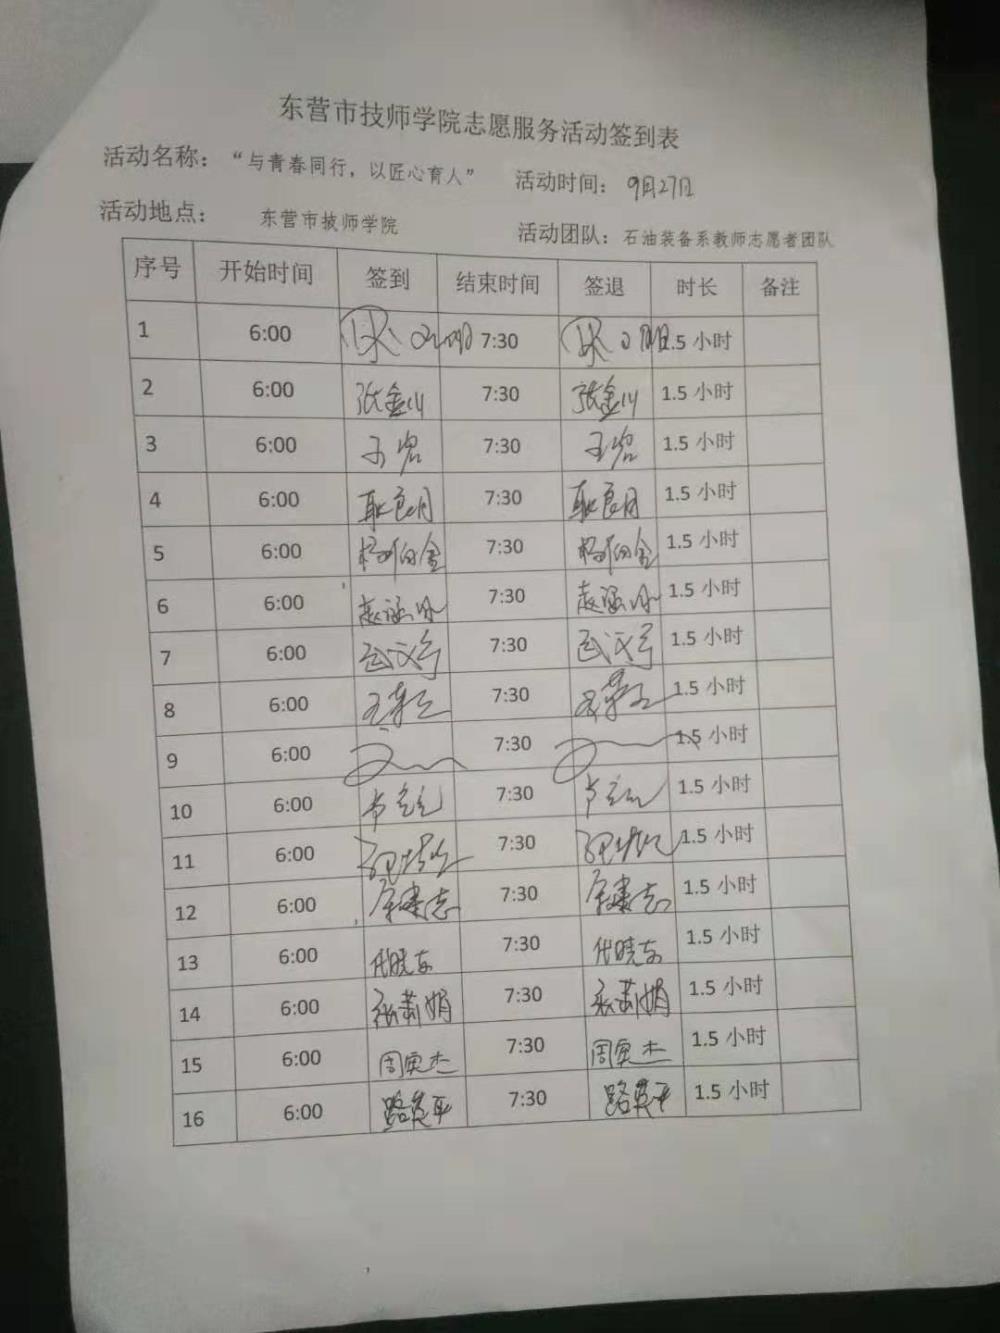 东营市技师学院志愿服务活动签到表
活动名称：“与青春同行，以匠心育人” 活动时间：9月27日
活动地点： 东营市技师学院 活动团队：石油装备系教师志愿者团队
序号 开始时间 签到 结束时间 签退 时长 备注
1 6:00 7:30 1.5 小时
2 6:00 张金川 7:30 张金川 1.5 小时
3 6:00 7:30 1.5 小时
4 6:00 耿良月 7:30 耿良月 1.5 小时
5 6:00 7:30 1.5 小时
6 6:00 7:30 1.5 小时
7 6:00 7:30 1.5 小时
8 6:00 7:30 1.5 小时
9 6:00 7:30 1.5 小时
10 6:00 7:30 1.5 小时
11 6:00 7:30 1.5 小时
12 6:00 7:30 1.5 小时
13 6:00 代晓东 7:30 代晓东 1.5 小时
14 6:00 张莉娟 7:30 张莉娟 1.5 小时
15 6:00 周奥杰 7:30 周奥杰 1.5 小时
16 6:00 路英平 7:30 路英平 1.5 小时